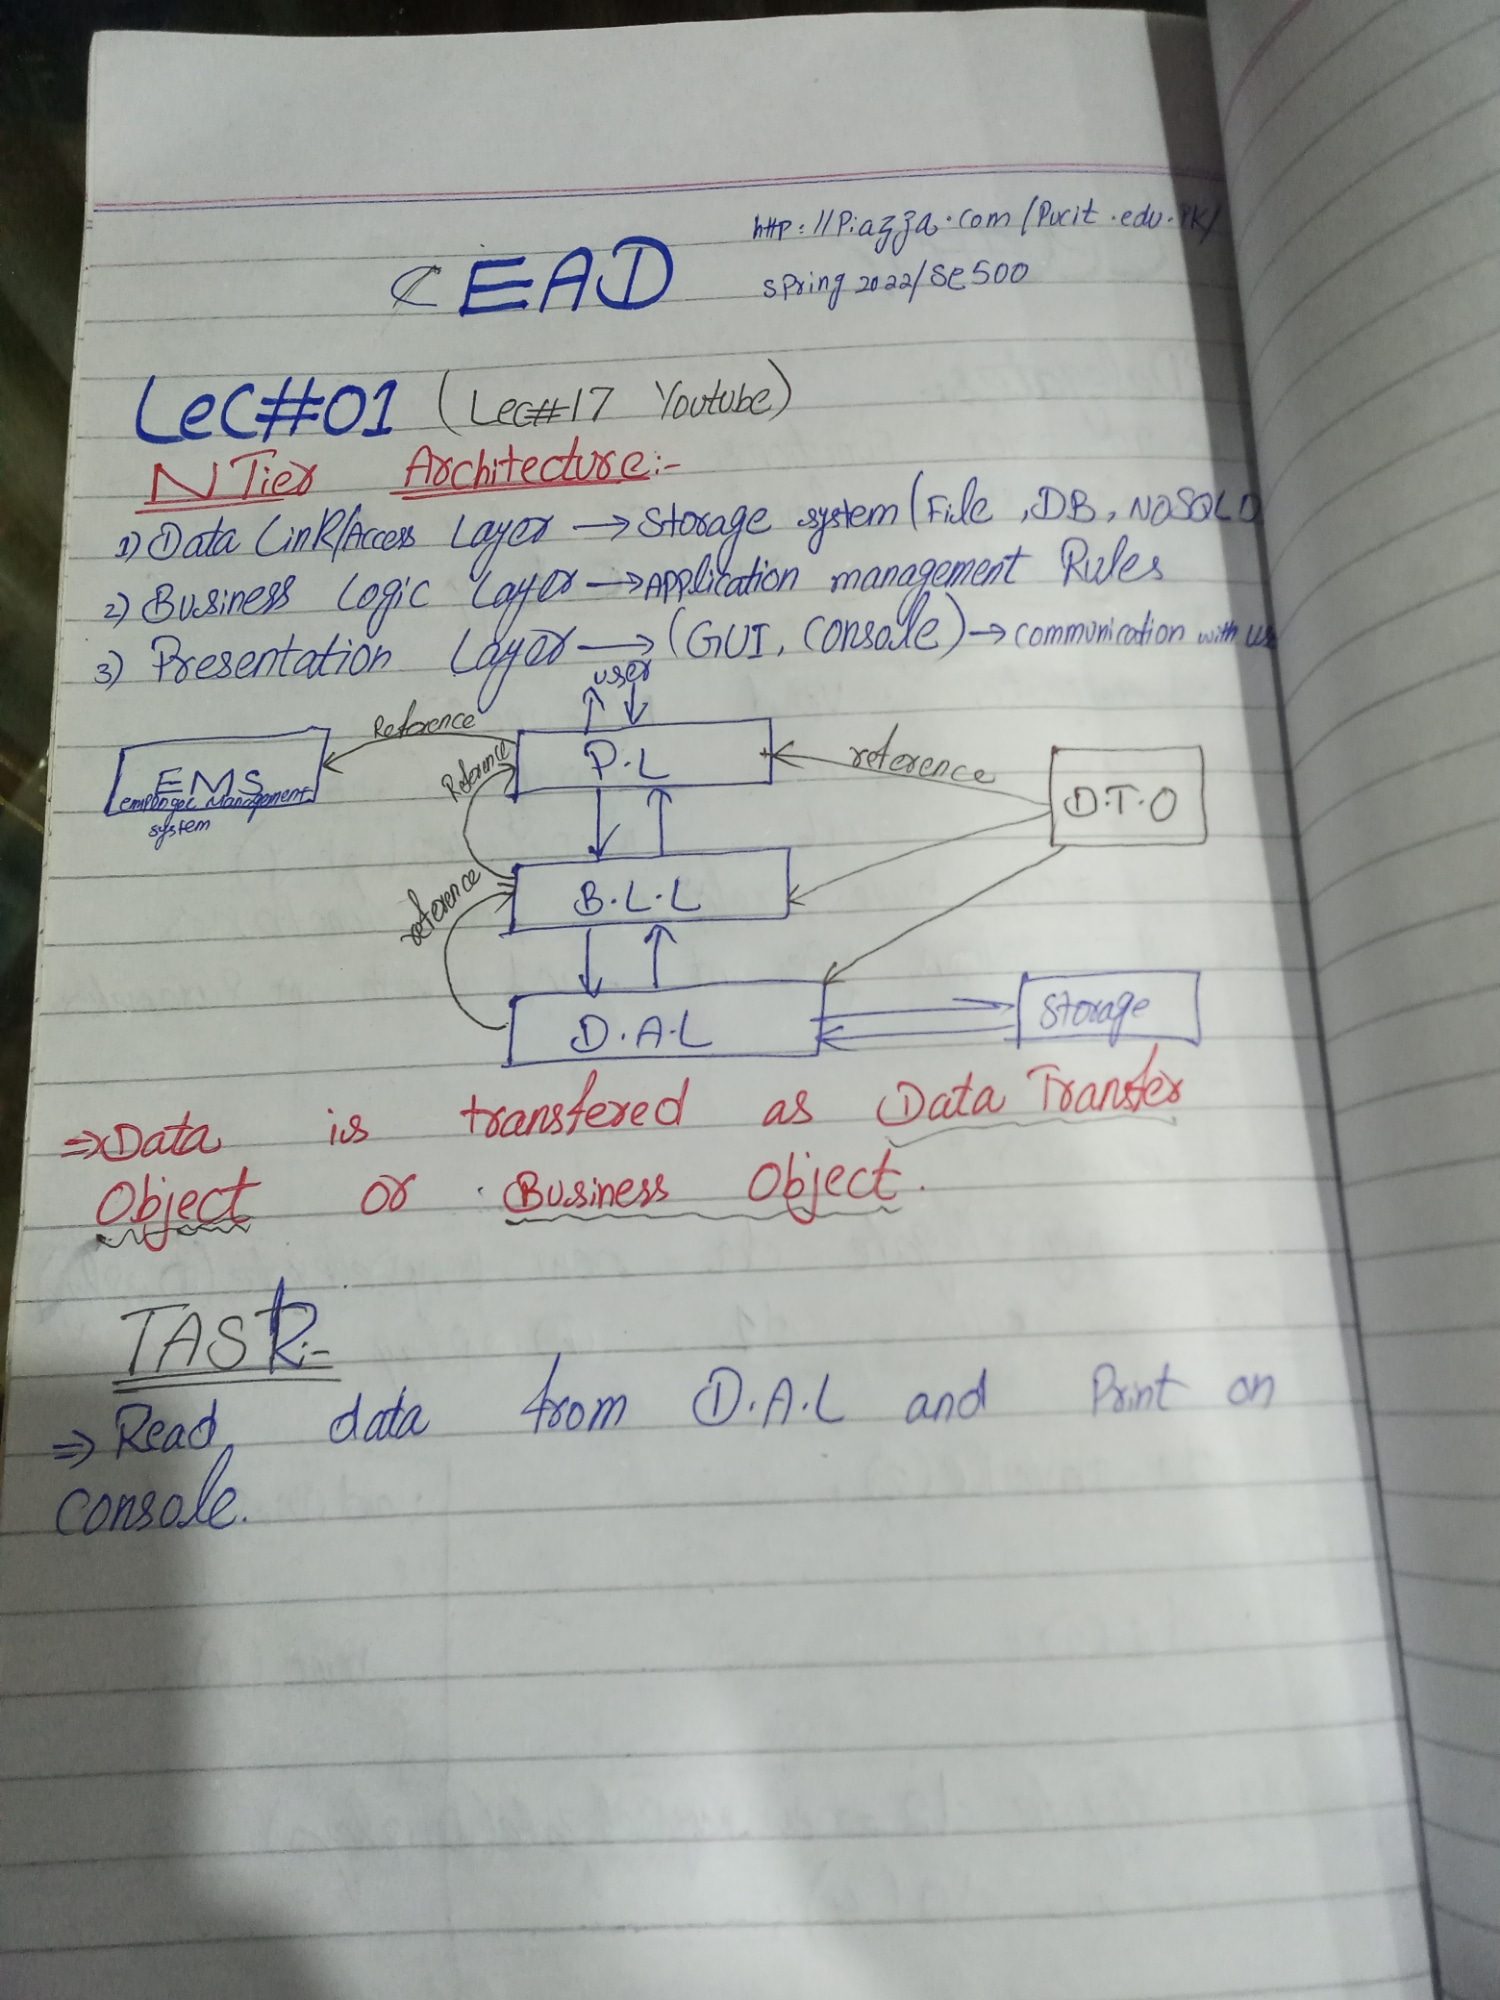 EAD
http://Piazza.com/Pucit.edu.PK/
spring 2022/SE500
Lec#01 (Lec#17 Youtube)
N Tier Architecture:-
1) Data Link/Access Layer → Storage system (File, DB, NOSQL
2) Business Logic Layer → Application management Rules
3) Presentation Layer → (GUI, Console) → communication with
user
Reference
P.L
reference
EMS
Management
system
Reference
D.T.O
B.L.L
reference
D.A.L
Storage
⇒ Data is transfered as Data Transfer
Object or Business Object.
TASK:-
⇒ Read data from D.A.L and Print on
console.